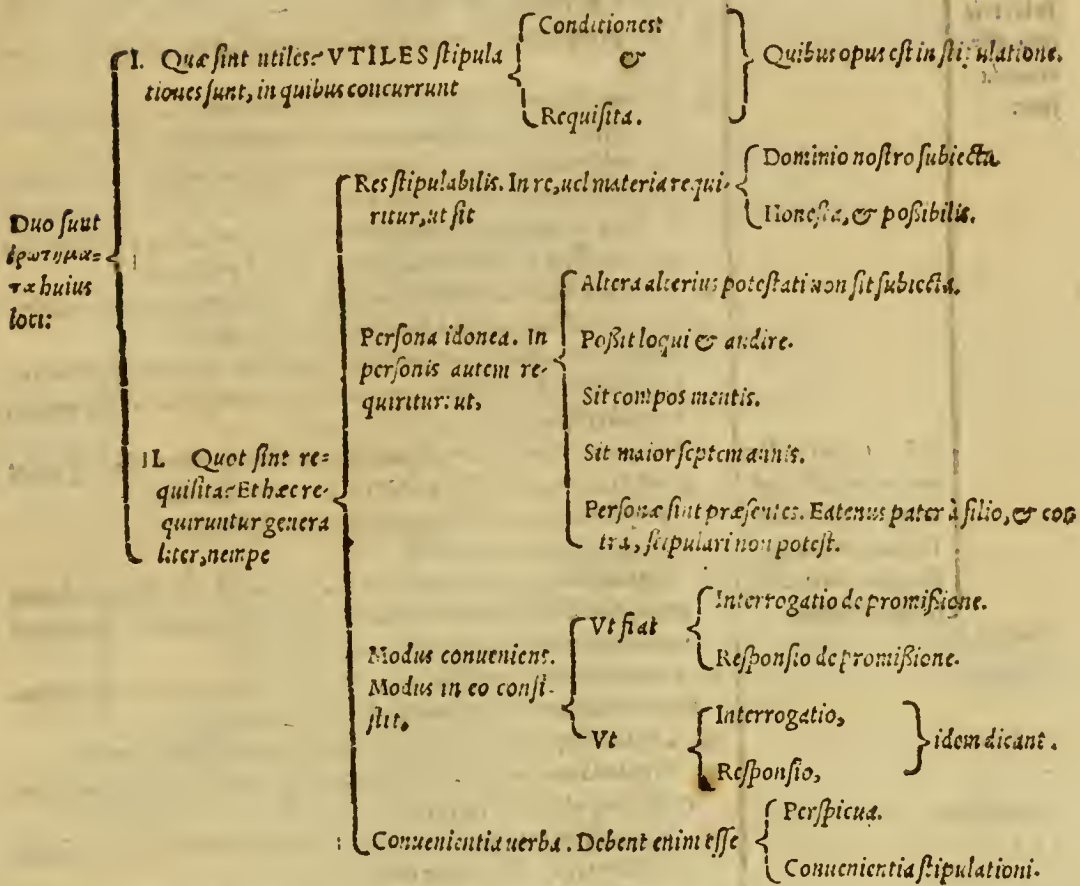 Duo sunt
ἐρωτήμα=
τα huius
loci:
I. Quæ sint utiles? VTILES stipula
tiones sunt, in quibus concurrunt
Conditiones:
&
Requisita.
Quibus opus est in stipulatione.
II. Quot sint re=
quisita? Et hæc re-
quiruntur genera
liter, nempe
Res stipulabilis. In re, uel materia requi-
ritur, ut sit
Dominio nostro subiecta.
Honesta, & poßibilis.
Persona idonea. In
personis autem re-
quiritur: ut,
Altera alterius potestati non sit subiecta.
Poßit loqui & audire.
Sit compos mentis.
Sit maior septem annis.
Personæ sint præsentes. Eatenus pater à filio, & con
tra, stipulari non potest.
Modus conueniens.
Modus in eo consi-
stit,
Vt fiat
Interrogatio de promißione.
Responsio de promißione.
Vt
Interrogatio,
Responsio,
idem dicant.
Conuenientia uerba. Debent enim esse
Perspicua.
Conuenientia stipulationi.